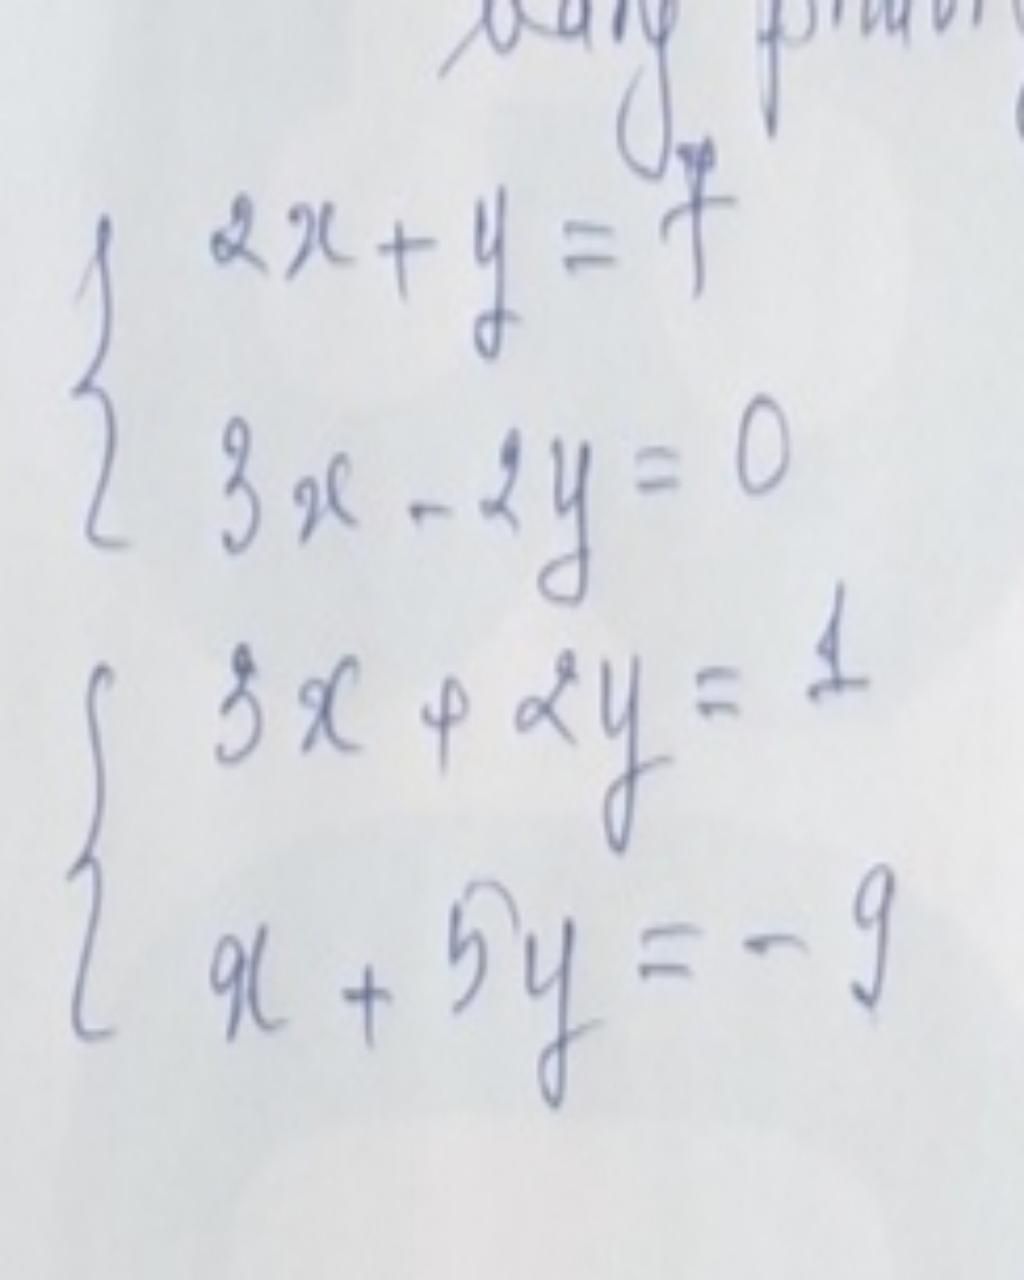 2x + y = 7
3x - 2y = 0
3x + 2y = 1
x + 5y = - 9